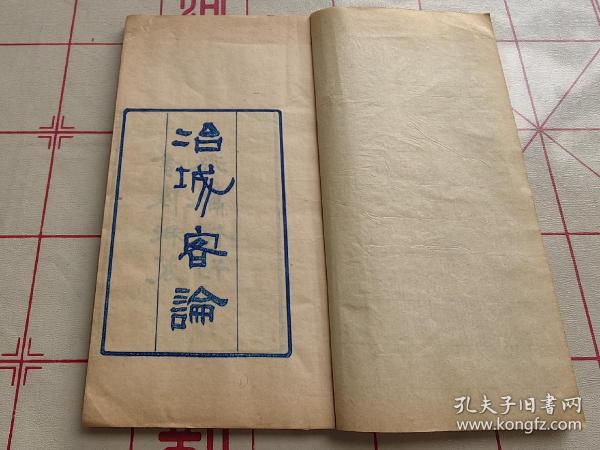 冶城客論
孔夫子旧书网
www.kongfz.com